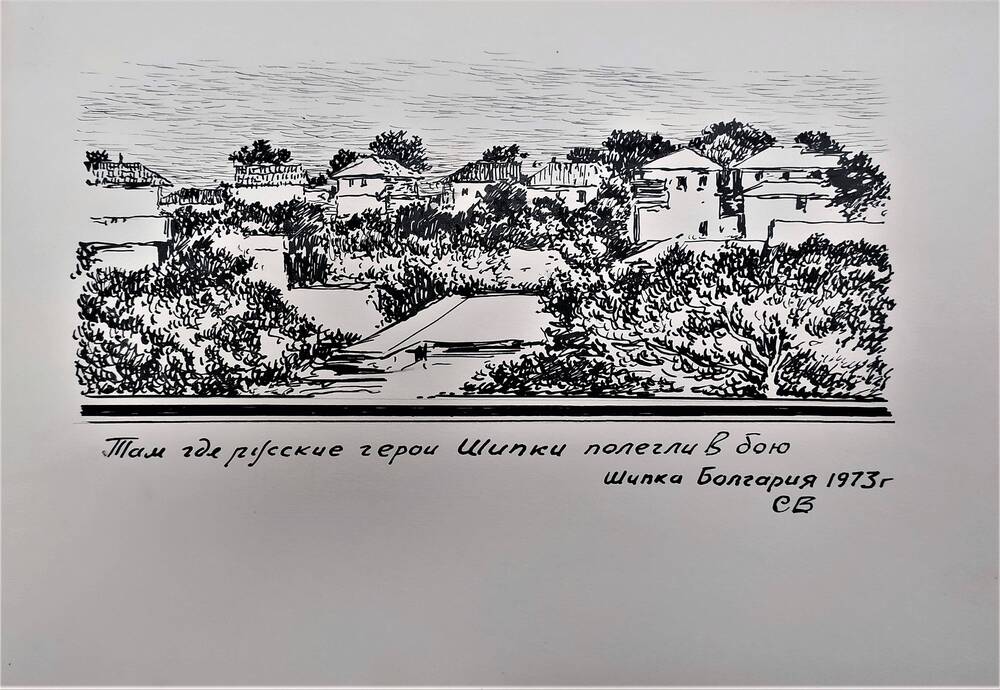 Там где русские герои Шипки полегли в бою
Шипка Болгария 1973г
СВ